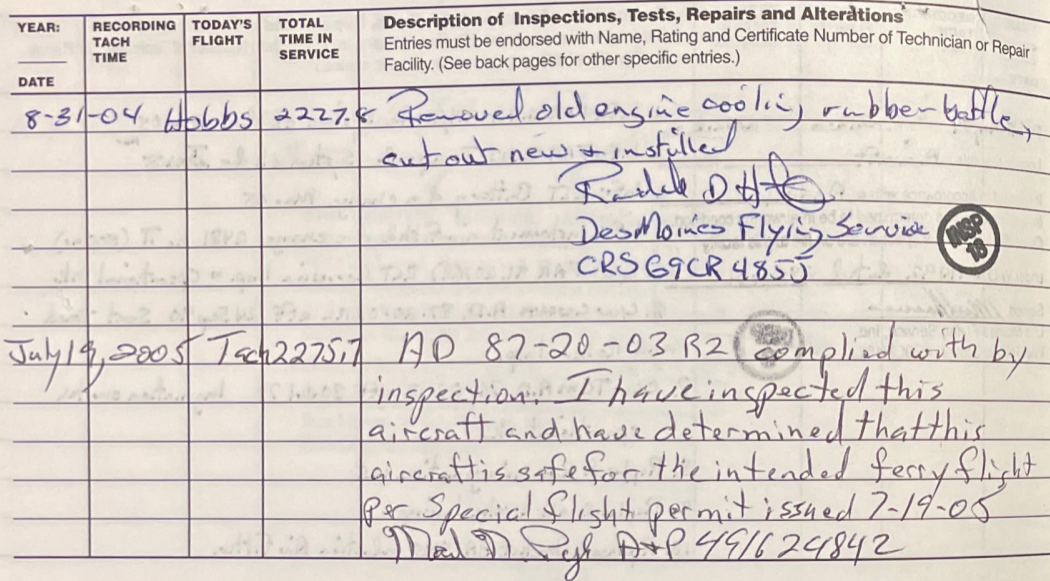 YEAR: RECORDING TACH TIME TODAY'S FLIGHT TOTAL TIME IN SERVICE Description of Inspections, Tests, Repairs and Alterations
Entries must be endorsed with Name, Rating and Certificate Number of Technician or Repair
Facility. (See back pages for other specific entries.)
DATE
8-31-04 Hobbs 2227.8 Removed old engine cooling rubber baffle,
cut out new & instilled
D
Des Moines Flying Service
INSP 18
CRS G9CR485J
July 19, 2005 Tach 2275.7 AD 87-20-03 R2 complied with by
inspection. I have inspected this
aircraft and have determined that this
aircraft is safe for the intended ferry flight
per Special flight permit issued 7-19-05
A&P 491624842